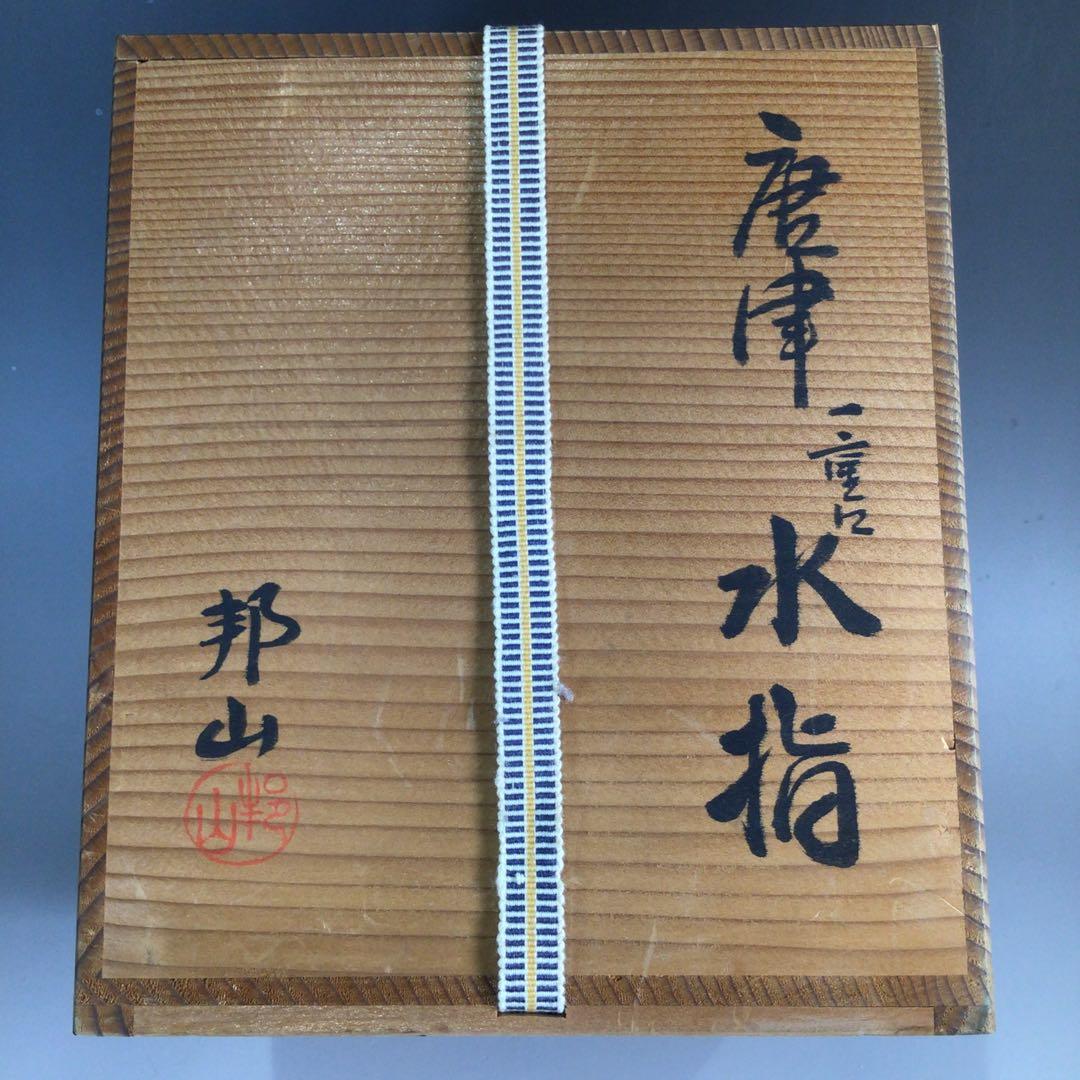 唐津一重口水指
邦山
邦山